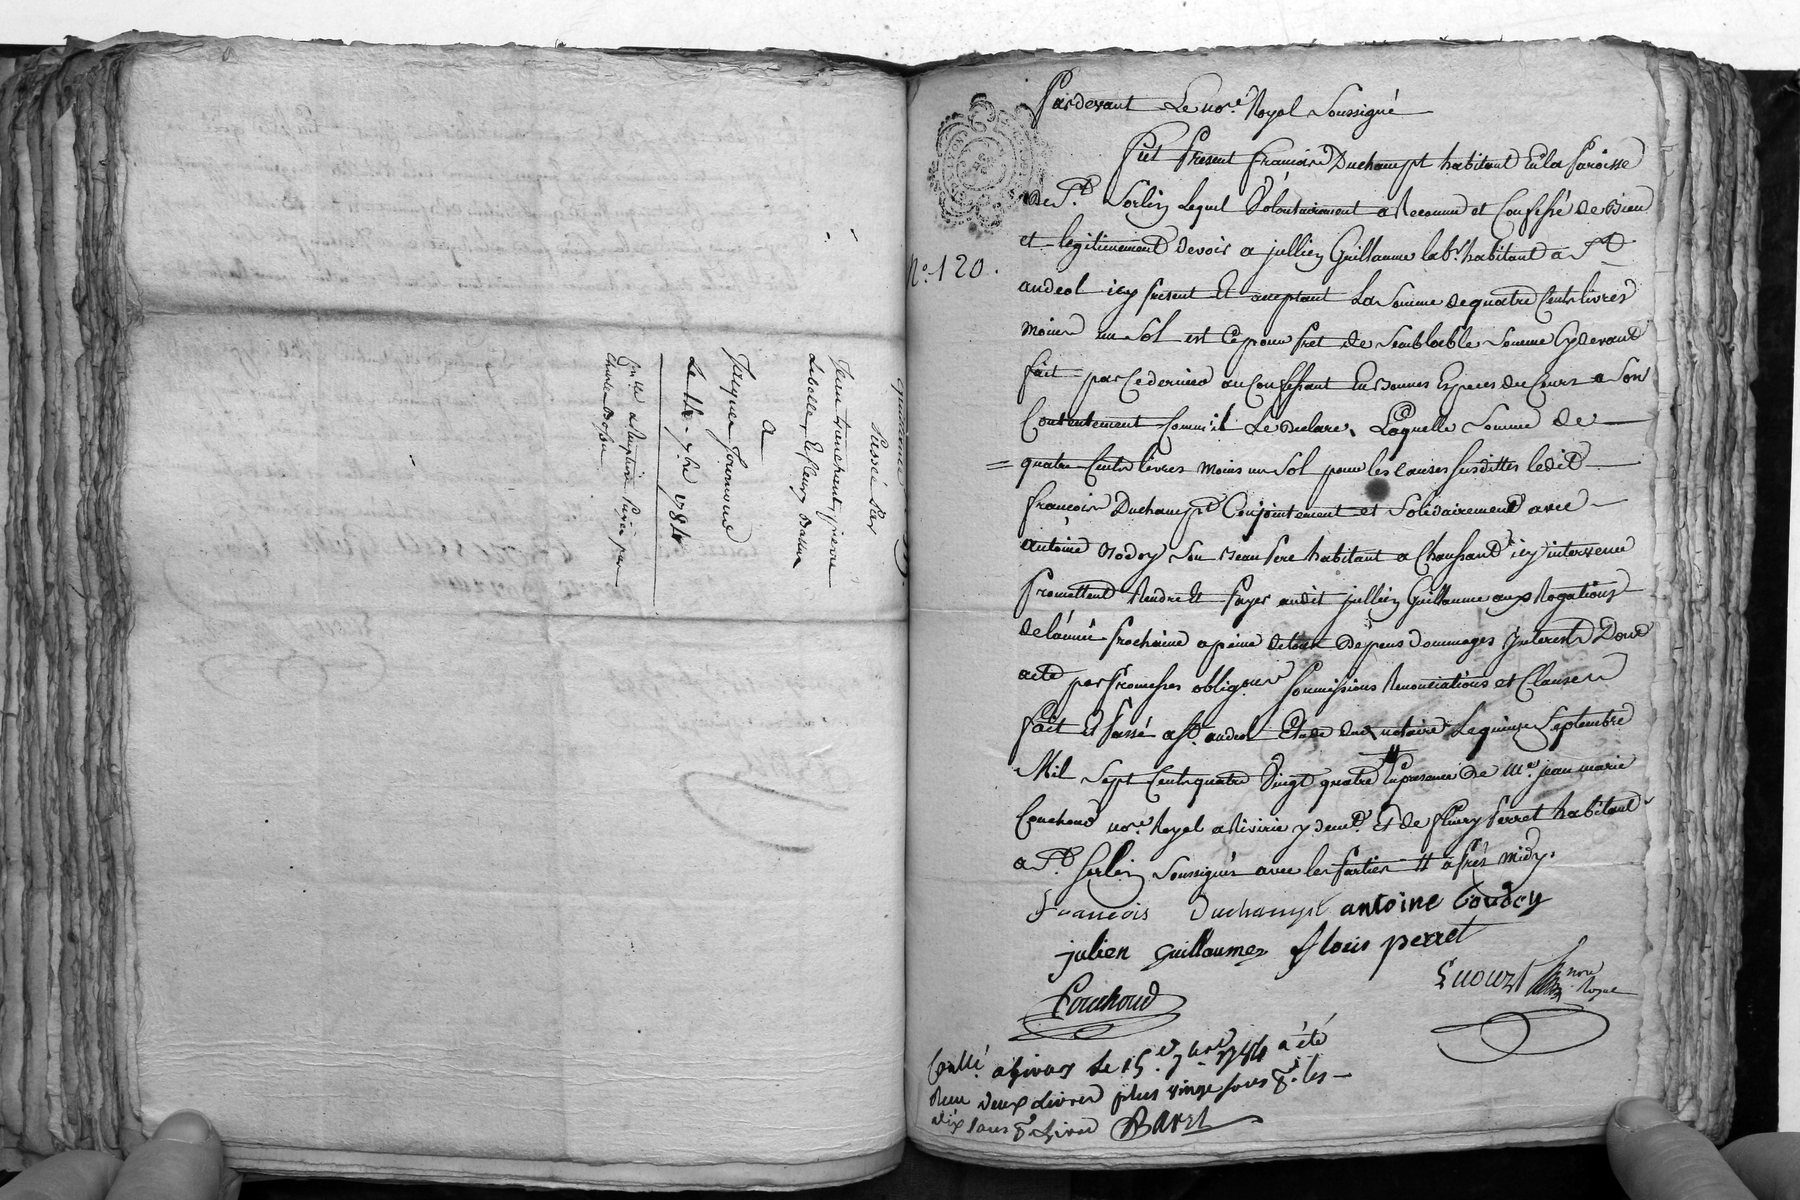 quittance
Passé par
Jean trunchent pierre
Labolley et fleury Basma
A
Jacques Fournoud
Le 14e. 7bre 1784
Charle Bosse
Pardevant Le nore. Royal Soussigné
Fut Present francois Duchampt habitant En la Paroisse
de St. Sorlin Lequel Volontairement a Reconnu et Confessé de Bien
et legitimement devoir a jullien Guillaume labr. habitant a St
andeol icy present Et acceptant La Somme de quatre Cents livres
Moins un Sol et Ce pour pret de Semblable Somme Cy devant
fait par Ce dernier au Confessant En Bonnes Especes du Cours a Son
Contentement Comm'il Le Declare, Laquelle Somme de
N°. 120.
= quatre Cents livres moins un Sol pour les causes susdittes ledit
francois Duchampt Conjointement et Solidairement avec
antoine Bodoy Son Beau Pere habitant a Chaussand icy intervenu
Promettent Rendre Et Payer audit jullien Guillaume aux Rogations
de l'année prochaine a peine de tous Depens Dommages Interests Dont
acte par Promesses obligaons Soumissions Renonciations et Clauses
fait Et Passé a St. andeol Etude du notaire Le quinze Septembre
Mil Sept Cents quatre Vingt quatre En presence de Me. jean marie
Couchoud nore. Royal a Riverie y demt. Et de fleury Perret habitant
a St Sorlin Soussignés avec les Parties // après midy.
Francois Duchampt antoine boudoy
julien guillaumes flouis perret
Couchoud nore Royal
Conllé. a Givors Le 15. e 7bre 1784 a été
Reçu deux Livres plus vingt sous pr. les
dix sous pr. Livre Baret